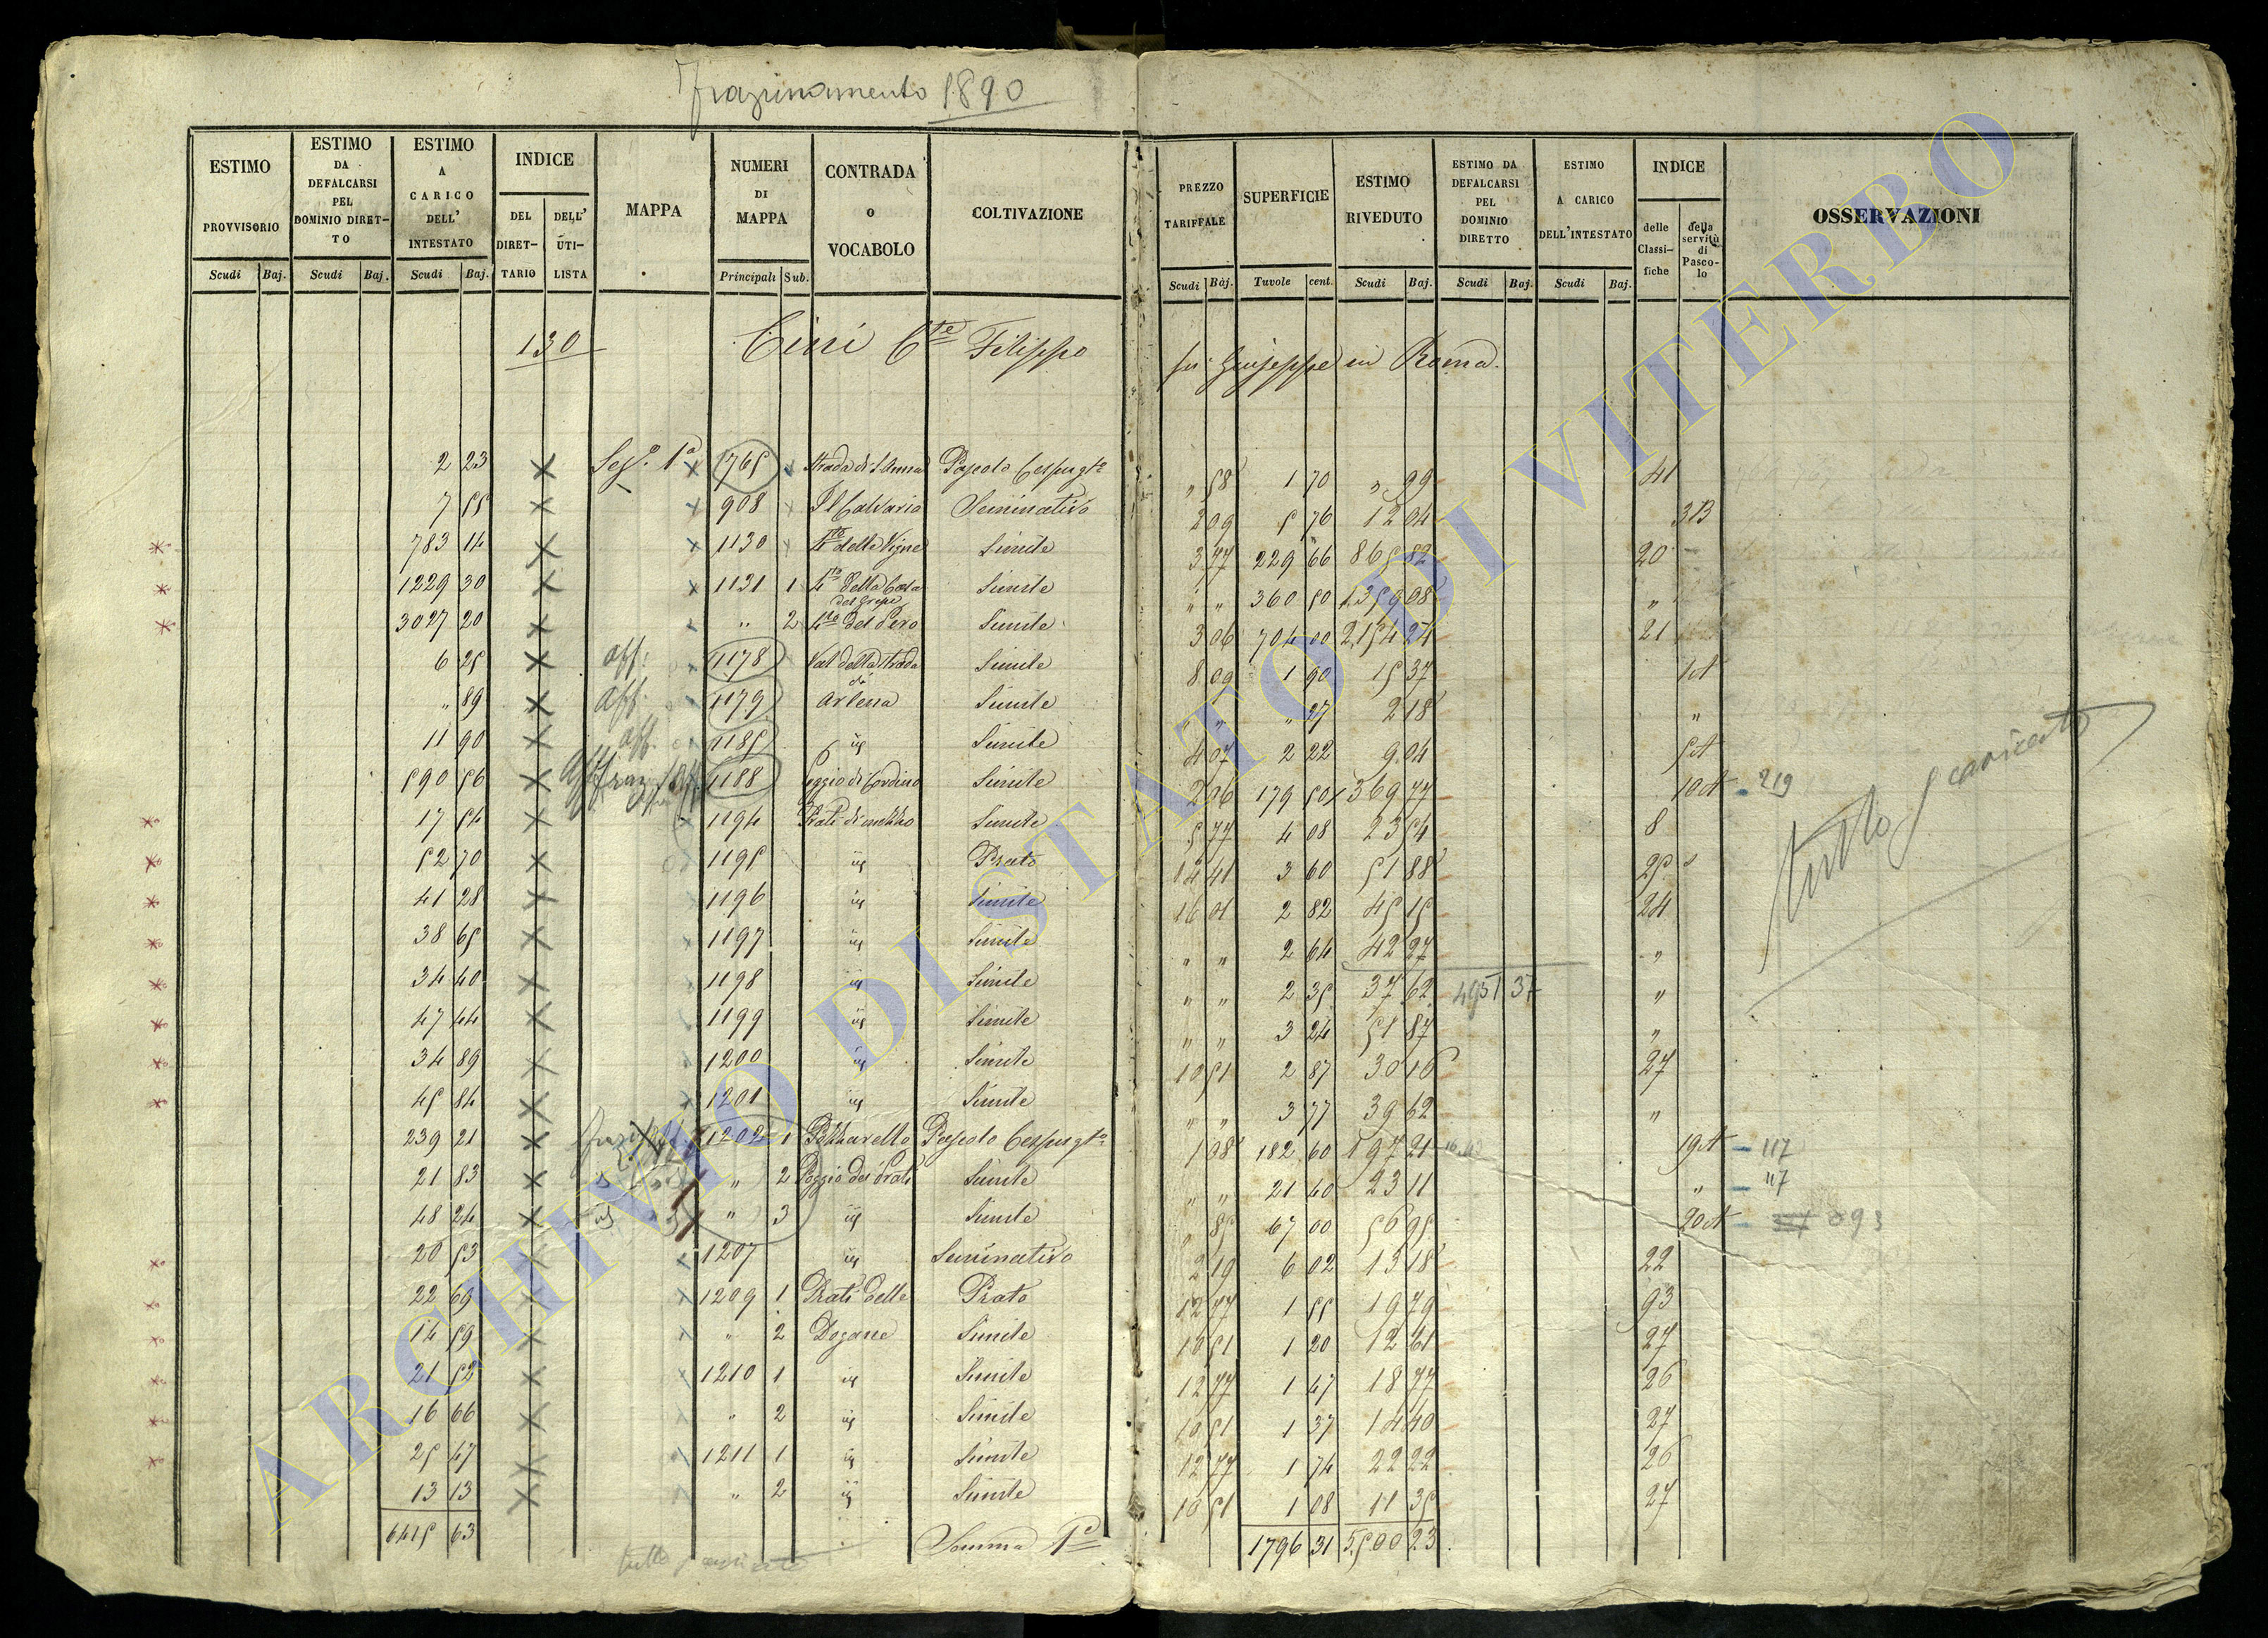 Frazionamento 1890
ESTIMO PROVVISORIO Scudi Baj.
ESTIMO DA DEFALCARSI PEL DOMINIO DIRET-TO Scudi Baj.
ESTIMO A CARICO DELL' INTESTATO Scudi Baj.
INDICE DEL DIRET-TARIO DELL' UTI-LISTA
MAPPA
NUMERI DI MAPPA Principali Sub.
CONTRADA O VOCABOLO
COLTIVAZIONE
PREZZO TARIFFALE Scudi Baj.
SUPERFICIE Tavole cent.
ESTIMO RIVEDUTO Scudi Baj.
ESTIMO DA DEFALCARSI PEL DOMINIO DIRETTO Scudi Baj.
ESTIMO A CARICO DELL'INTESTATO Scudi Baj.
INDICE delle Classi-fiche della servitù di Pasco-lo
OSSERVAZIONI
130 Cini Cte Filippo fu Giuseppe in Roma.
2 23 Sez.e 1a 1765 Strada di S. Anna Pascolo Cespugto " 58 1 70 " 99 41
7 55 908 Il Calvario Seminativo 2 09 5 76 12 04 3B
783 14 1130 4to delle Vigne Simile 3 77 229 66 865 82 20
1229 30 1131 1 4to della Costa del Grepe Simile " " 360 50 1359 08 "
3027 20 " 2 4to del Pero Simile 3 06 704 00 2154 24 21
6 25 aff. 1178 Val della Strada Simile 8 09 1 90 15 37 1A
" 89 aff. 1179 di Arlena Simile " " " 27 2 18 "
11 90 aff. 1185 id Simile 4 07 2 22 9 04 5A
590 56 1188 Poggio di Cordino Simile 2 06 179 50 369 77 10A 219
17 54 1194 Prati di mezzo Simile 5 77 4 08 23 54 8
52 70 1195 id Prato 14 41 3 60 51 88 25
41 28 1196 id Simile 16 01 2 82 45 15 24
38 65 1197 id Simile " " 2 64 42 27 "
34 40 1198 id Simile " " 2 35 37 62 4951 37 "
47 44 1199 id Simile " " 3 24 51 87 "
34 89 1200 id Simile 10 51 2 87 30 16 27
45 84 1201 id Simile " " 3 77 39 62 "
239 21 1202 1 Pascolo Cespugto 1 08 182 60 197 21 19A 117
21 83 " 2 Poggio dei Prati Simile " " 21 40 23 11 " 117
48 24 id " 3 id Simile " 85 67 00 56 95 20A 093
20 53 1207 id Seminativo 2 19 6 02 13 18 22
22 69 1209 1 Prati delle Prato 12 77 1 55 19 79 93
14 59 " 2 Dogane Simile 10 51 1 20 12 61 27
21 52 1210 1 id Simile 12 77 1 47 18 77 26
16 66 " 2 id Simile 10 51 1 37 14 40 27
25 47 1211 1 id Simile 12 77 1 74 22 22 26
13 13 " 2 id Simile 10 51 1 08 11 35 27
6415 63 Somma 1a 1796 31 5500 23
tutto scaricato
tutto scaricato
ARCHIVIO DI STATO DI VITERBO